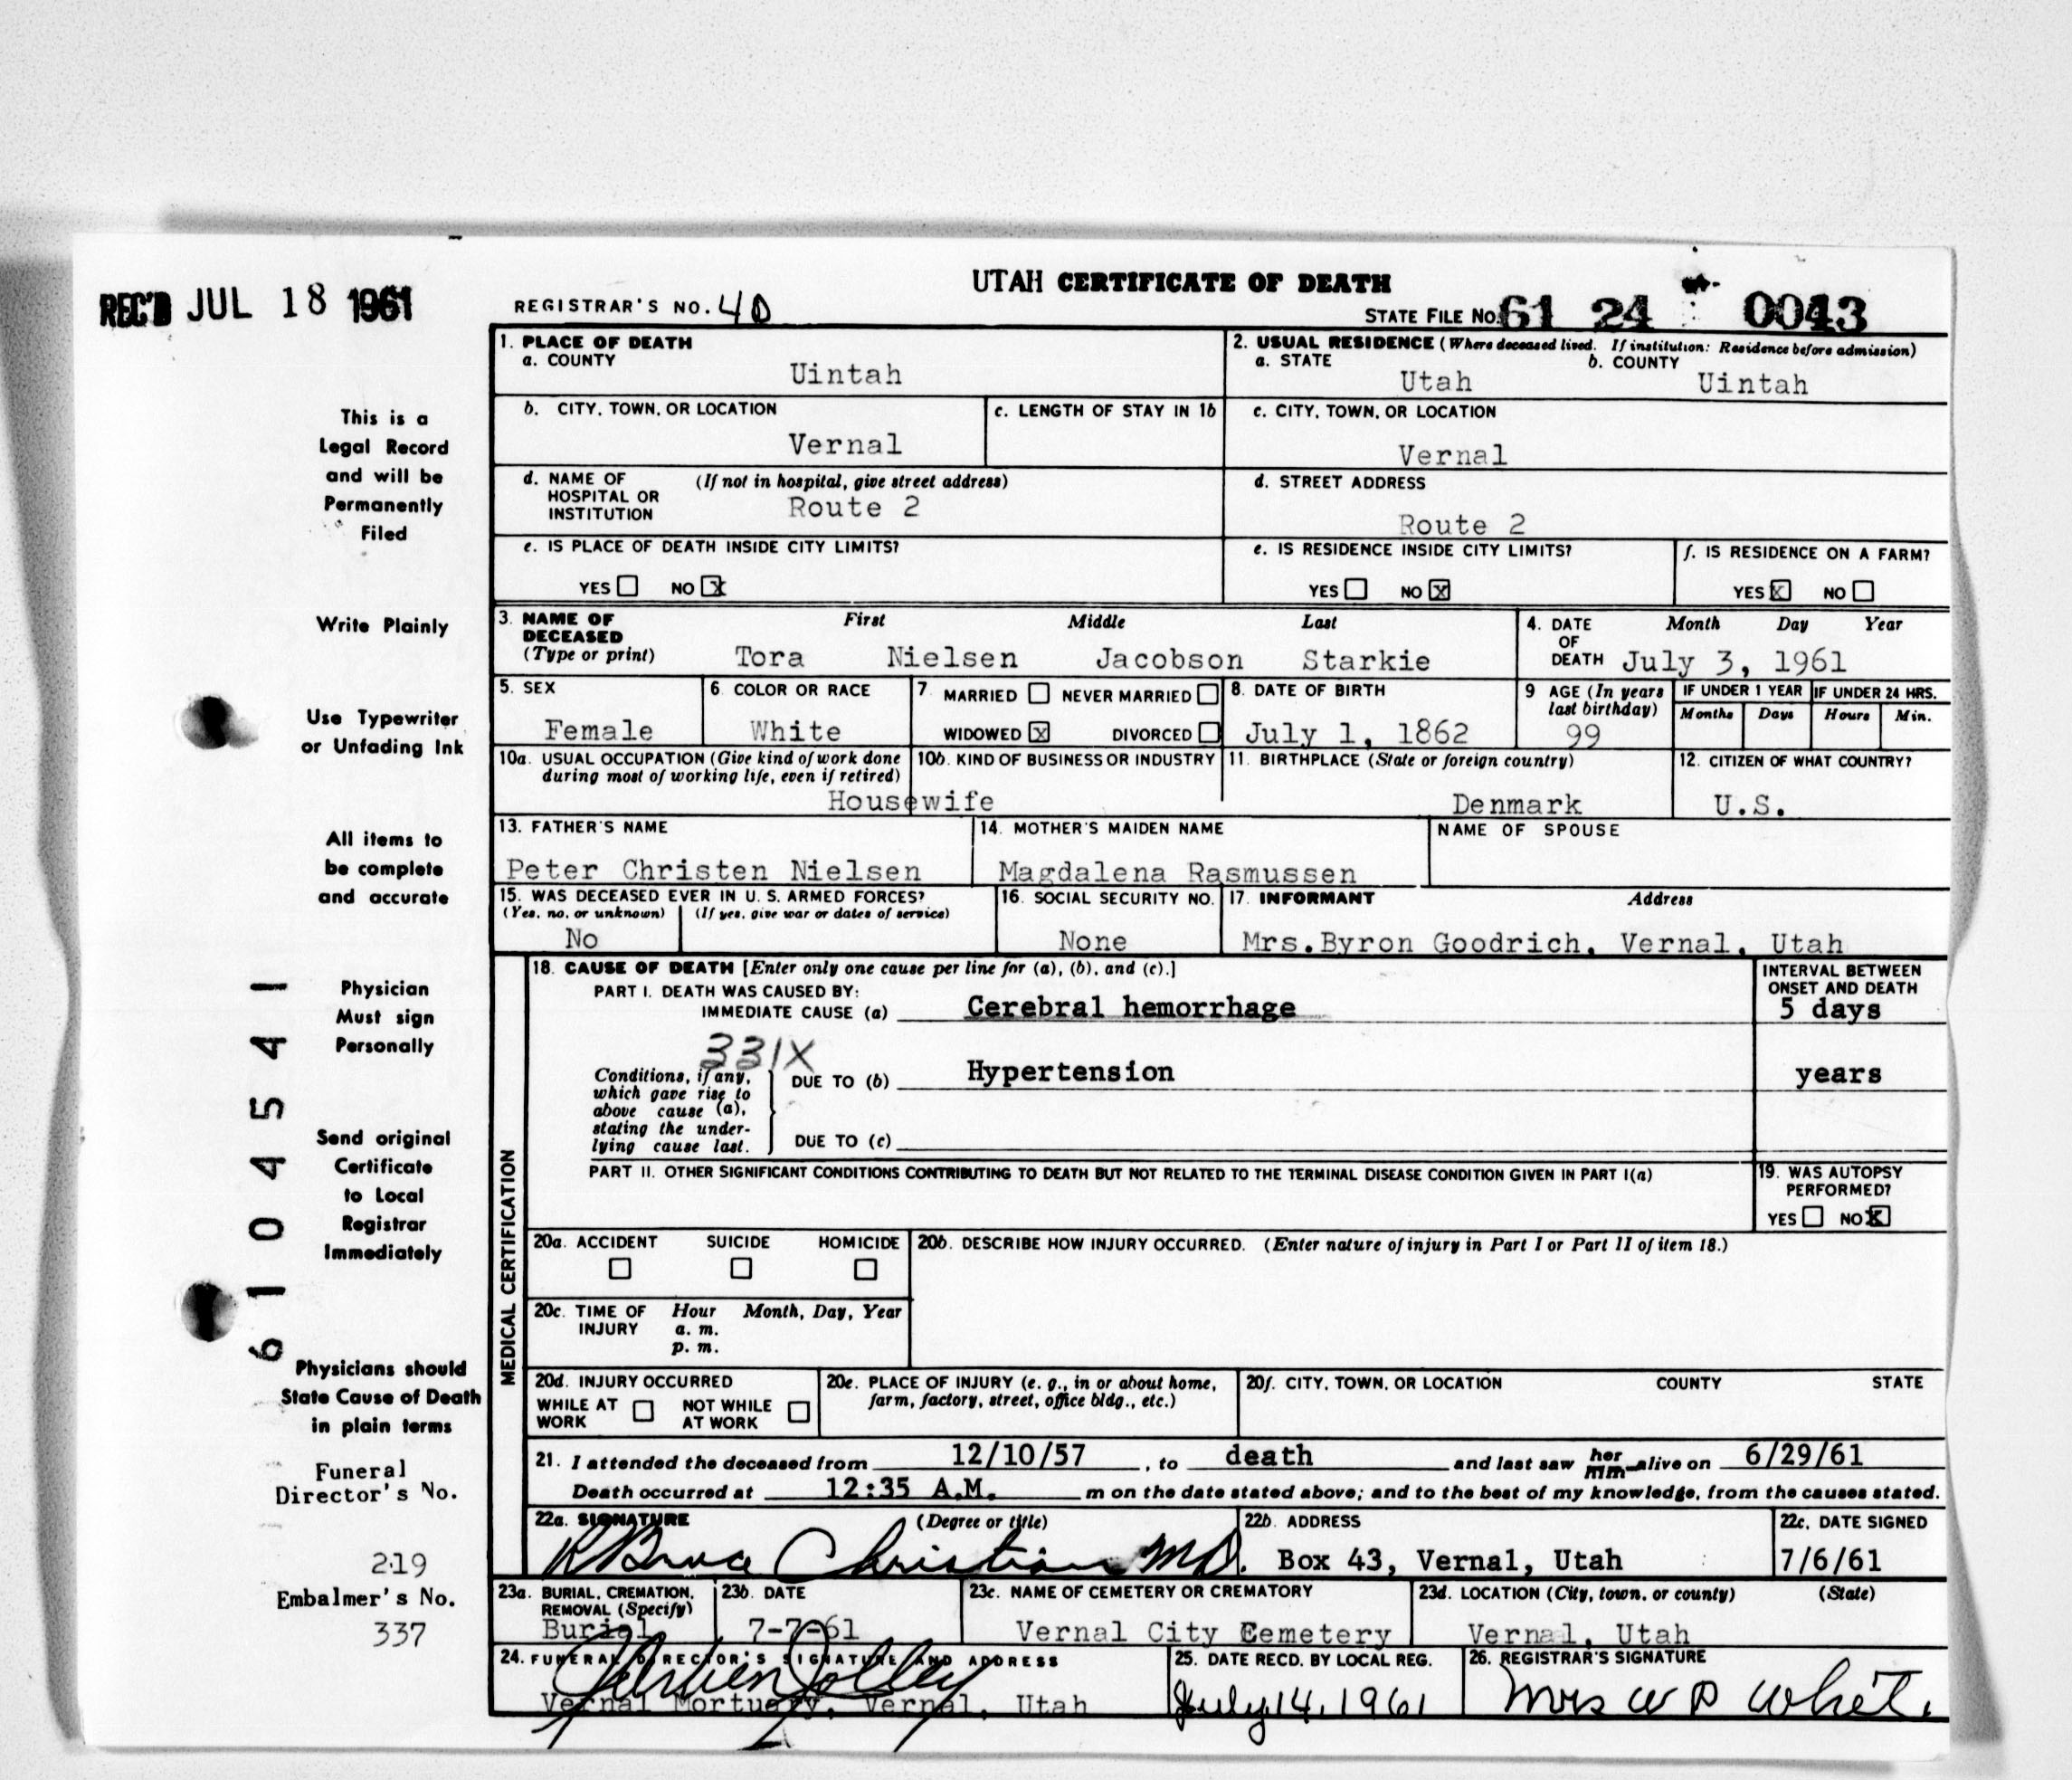 UTAH CERTIFICATE OF DEATH
REC'D JUL 18 1961
REGISTRAR'S NO. 40
STATE FILE NO. 61 24 0043
1. PLACE OF DEATH
a. COUNTY
Uintah
2. USUAL RESIDENCE (Where deceased lived. If institution: Residence before admission)
a. STATE
Utah
b. COUNTY
Uintah
b. CITY, TOWN, OR LOCATION
Vernal
c. LENGTH OF STAY IN 1b
c. CITY, TOWN, OR LOCATION
Vernal
d. NAME OF HOSPITAL OR INSTITUTION
(If not in hospital, give street address)
Route 2
d. STREET ADDRESS
Route 2
e. IS PLACE OF DEATH INSIDE CITY LIMITS?
YES NO X
e. IS RESIDENCE INSIDE CITY LIMITS?
YES NO X
f. IS RESIDENCE ON A FARM?
YES X NO
3. NAME OF DECEASED (Type or print)
First Middle Last
Tora Nielsen Jacobson Starkie
4. DATE OF DEATH
Month Day Year
July 3, 1961
5. SEX
Female
6. COLOR OR RACE
White
7. MARRIED NEVER MARRIED
WIDOWED X DIVORCED
8. DATE OF BIRTH
July 1, 1862
9 AGE (In years last birthday)
99
IF UNDER 1 YEAR
Months Days
IF UNDER 24 HRS.
Hours Min.
10a. USUAL OCCUPATION (Give kind of work done during most of working life, even if retired)
10b. KIND OF BUSINESS OR INDUSTRY
Housewife
11. BIRTHPLACE (State or foreign country)
Denmark
12. CITIZEN OF WHAT COUNTRY?
U.S.
13. FATHER'S NAME
Peter Christen Nielsen
14. MOTHER'S MAIDEN NAME
Magdalena Rasmussen
NAME OF SPOUSE
15. WAS DECEASED EVER IN U. S. ARMED FORCES?
(Yes, no, or unknown) (If yes, give war or dates of service)
No
16. SOCIAL SECURITY NO.
None
17. INFORMANT Address
Mrs.Byron Goodrich, Vernal, Utah
MEDICAL CERTIFICATION
18. CAUSE OF DEATH [Enter only one cause per line for (a), (b), and (c).]
INTERVAL BETWEEN ONSET AND DEATH
PART I. DEATH WAS CAUSED BY:
IMMEDIATE CAUSE (a) Cerebral hemorrhage
5 days
331X
Conditions, if any, which gave rise to above cause (a), stating the underlying cause last.
DUE TO (b) Hypertension
years
DUE TO (c)
PART II. OTHER SIGNIFICANT CONDITIONS CONTRIBUTING TO DEATH BUT NOT RELATED TO THE TERMINAL DISEASE CONDITION GIVEN IN PART I(a)
19. WAS AUTOPSY PERFORMED?
YES NO X
20a. ACCIDENT SUICIDE HOMICIDE
20b. DESCRIBE HOW INJURY OCCURRED. (Enter nature of injury in Part I or Part II of item 18.)
20c. TIME OF INJURY
Hour Month, Day, Year
a. m.
p. m.
20d. INJURY OCCURRED
WHILE AT WORK NOT WHILE AT WORK
20e. PLACE OF INJURY (e. g., in or about home, farm, factory, street, office bldg., etc.)
20f. CITY, TOWN, OR LOCATION COUNTY STATE
21. I attended the deceased from 12/10/57, to death and last saw her him alive on 6/29/61
Death occurred at 12:35 A.M. m on the date stated above; and to the best of my knowledge, from the causes stated.
22a. SIGNATURE (Degree or title)
R Bruce Christian MD.
22b. ADDRESS
Box 43, Vernal, Utah
22c. DATE SIGNED
7/6/61
23a. BURIAL, CREMATION, REMOVAL (Specify)
Burial
23b. DATE
7-7-61
23c. NAME OF CEMETERY OR CREMATORY
Vernal City Cemetery
23d. LOCATION (City, town, or county) (State)
Vernal, Utah
24. FUNERAL DIRECTOR'S SIGNATURE AND ADDRESS
Vernal Mortuary, Vernal, Utah
25. DATE RECD. BY LOCAL REG.
July 14, 1961
26. REGISTRAR'S SIGNATURE
Mrs W D White
This is a
Legal Record
and will be
Permanently
Filed
Write Plainly
Use Typewriter
or Unfading Ink
All items to
be complete
and accurate
Physician
Must sign
Personally
Send original
Certificate
to Local
Registrar
Immediately
Physicians should
State Cause of Death
in plain terms
Funeral
Director's No.
219
Embalmer's No.
337
6104541